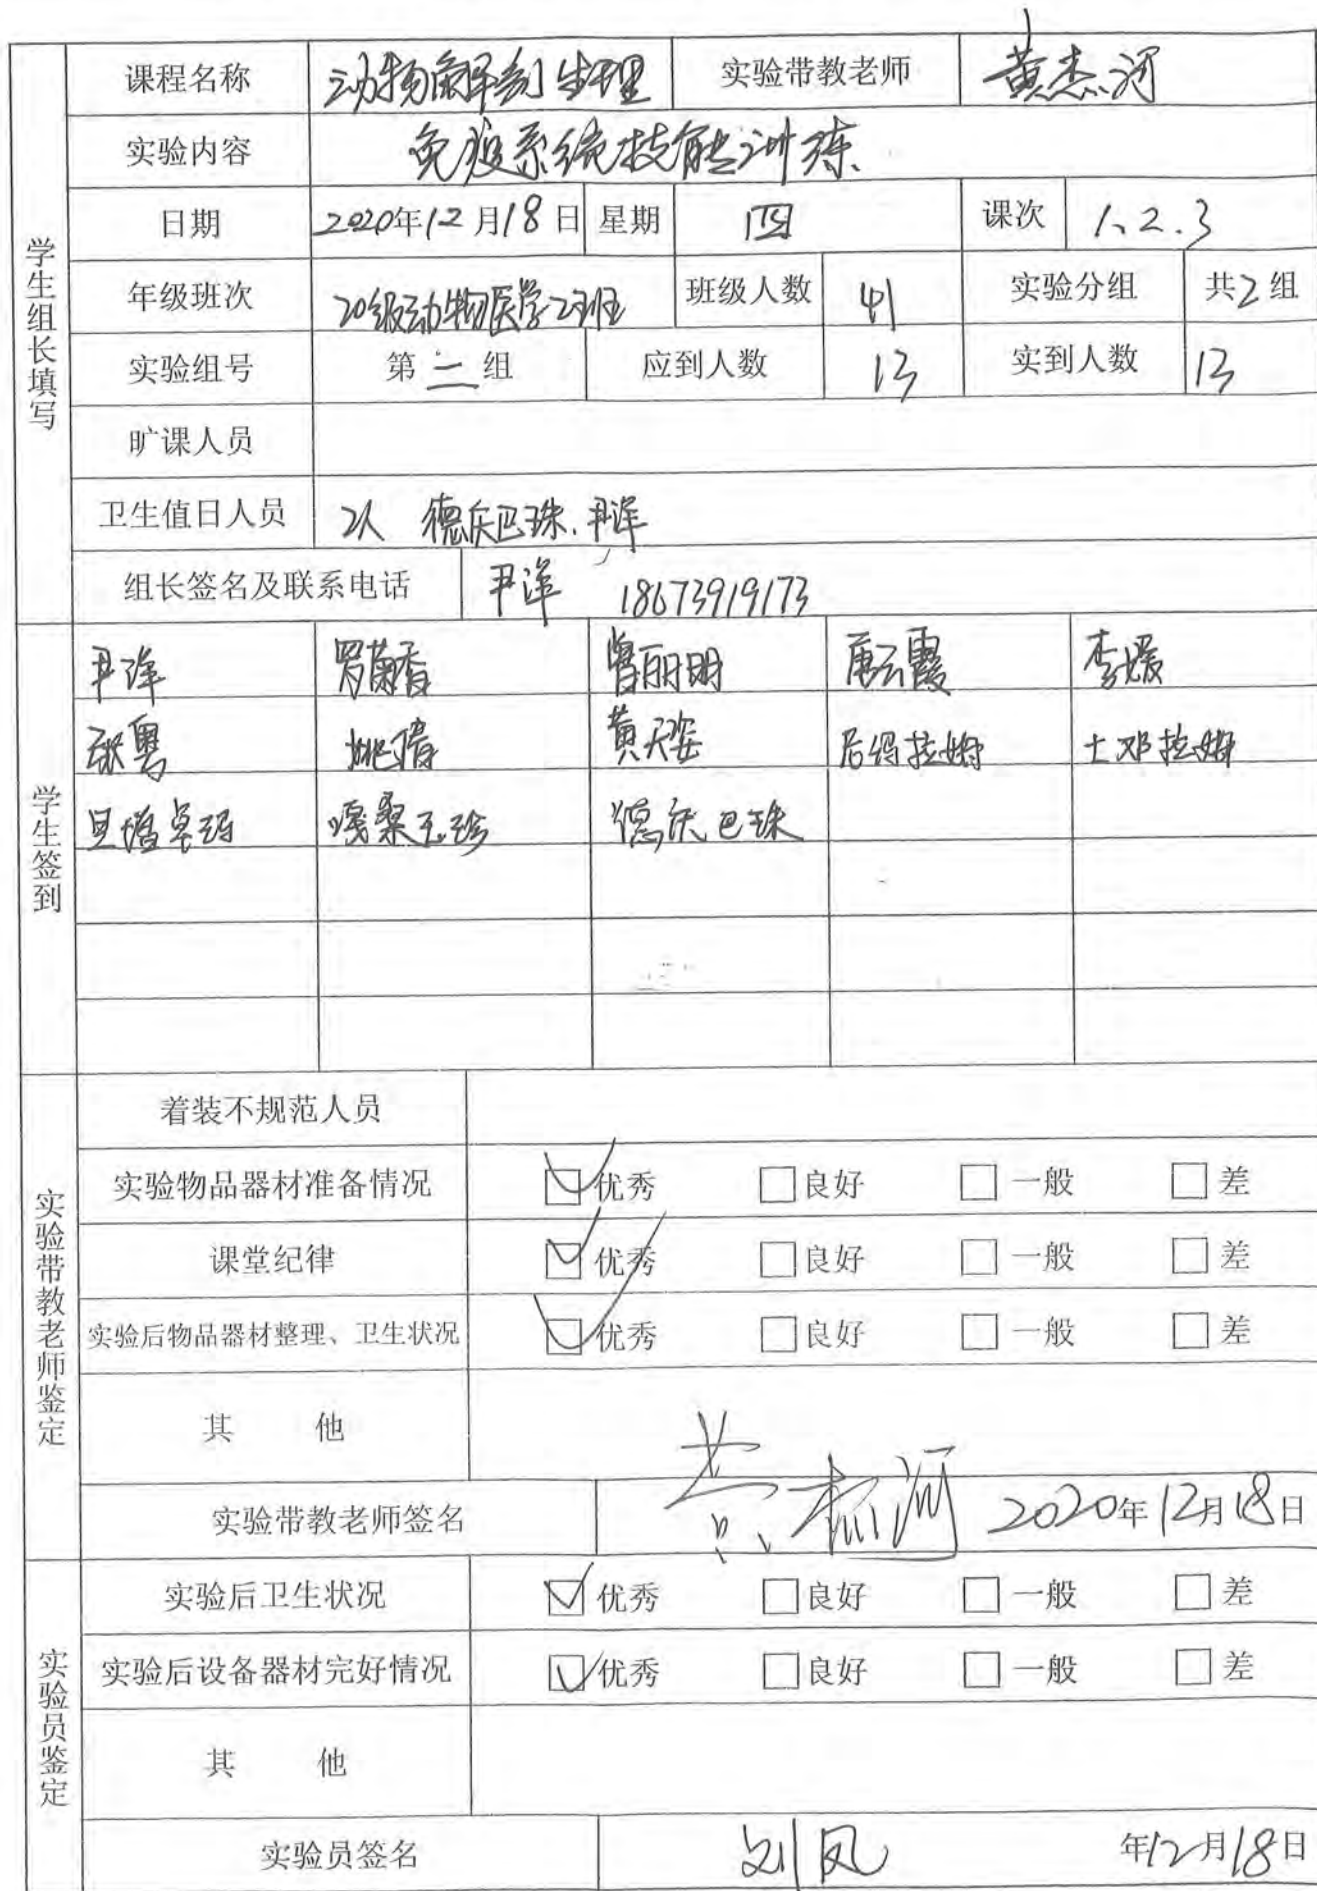 课程名称 动物解剖生理 实验带教老师 黄杰河
实验内容 免疫系统技能训练
日期 2020年12月18日 星期 四 课次 1、2、3
年级班次 20级动物医学2班 班级人数 41 实验分组 共2组
实验组号 第二组 应到人数 13 实到人数 13
旷课人员
卫生值日人员 2人 德庆巴珠、尹洋
组长签名及联系电话 尹洋 18673919173
学生组长填写
尹洋 罗菊香 曾丽明 唐云霞 李媛
张粤 姚倩 黄天姿 后得拉姆 土邓拉姆
旦增卓玛 嘎桑玉珍 德庆巴珠
学生签到
着装不规范人员
实验物品器材准备情况 优秀 良好 一般 差
课堂纪律 优秀 良好 一般 差
实验后物品器材整理、卫生状况 优秀 良好 一般 差
其 他
实验带教老师签名 黄杰河 2020年12月18日
实验带教老师鉴定
实验后卫生状况 优秀 良好 一般 差
实验后设备器材完好情况 优秀 良好 一般 差
其 他
实验员签名 刘凤 年12月18日
实验员鉴定